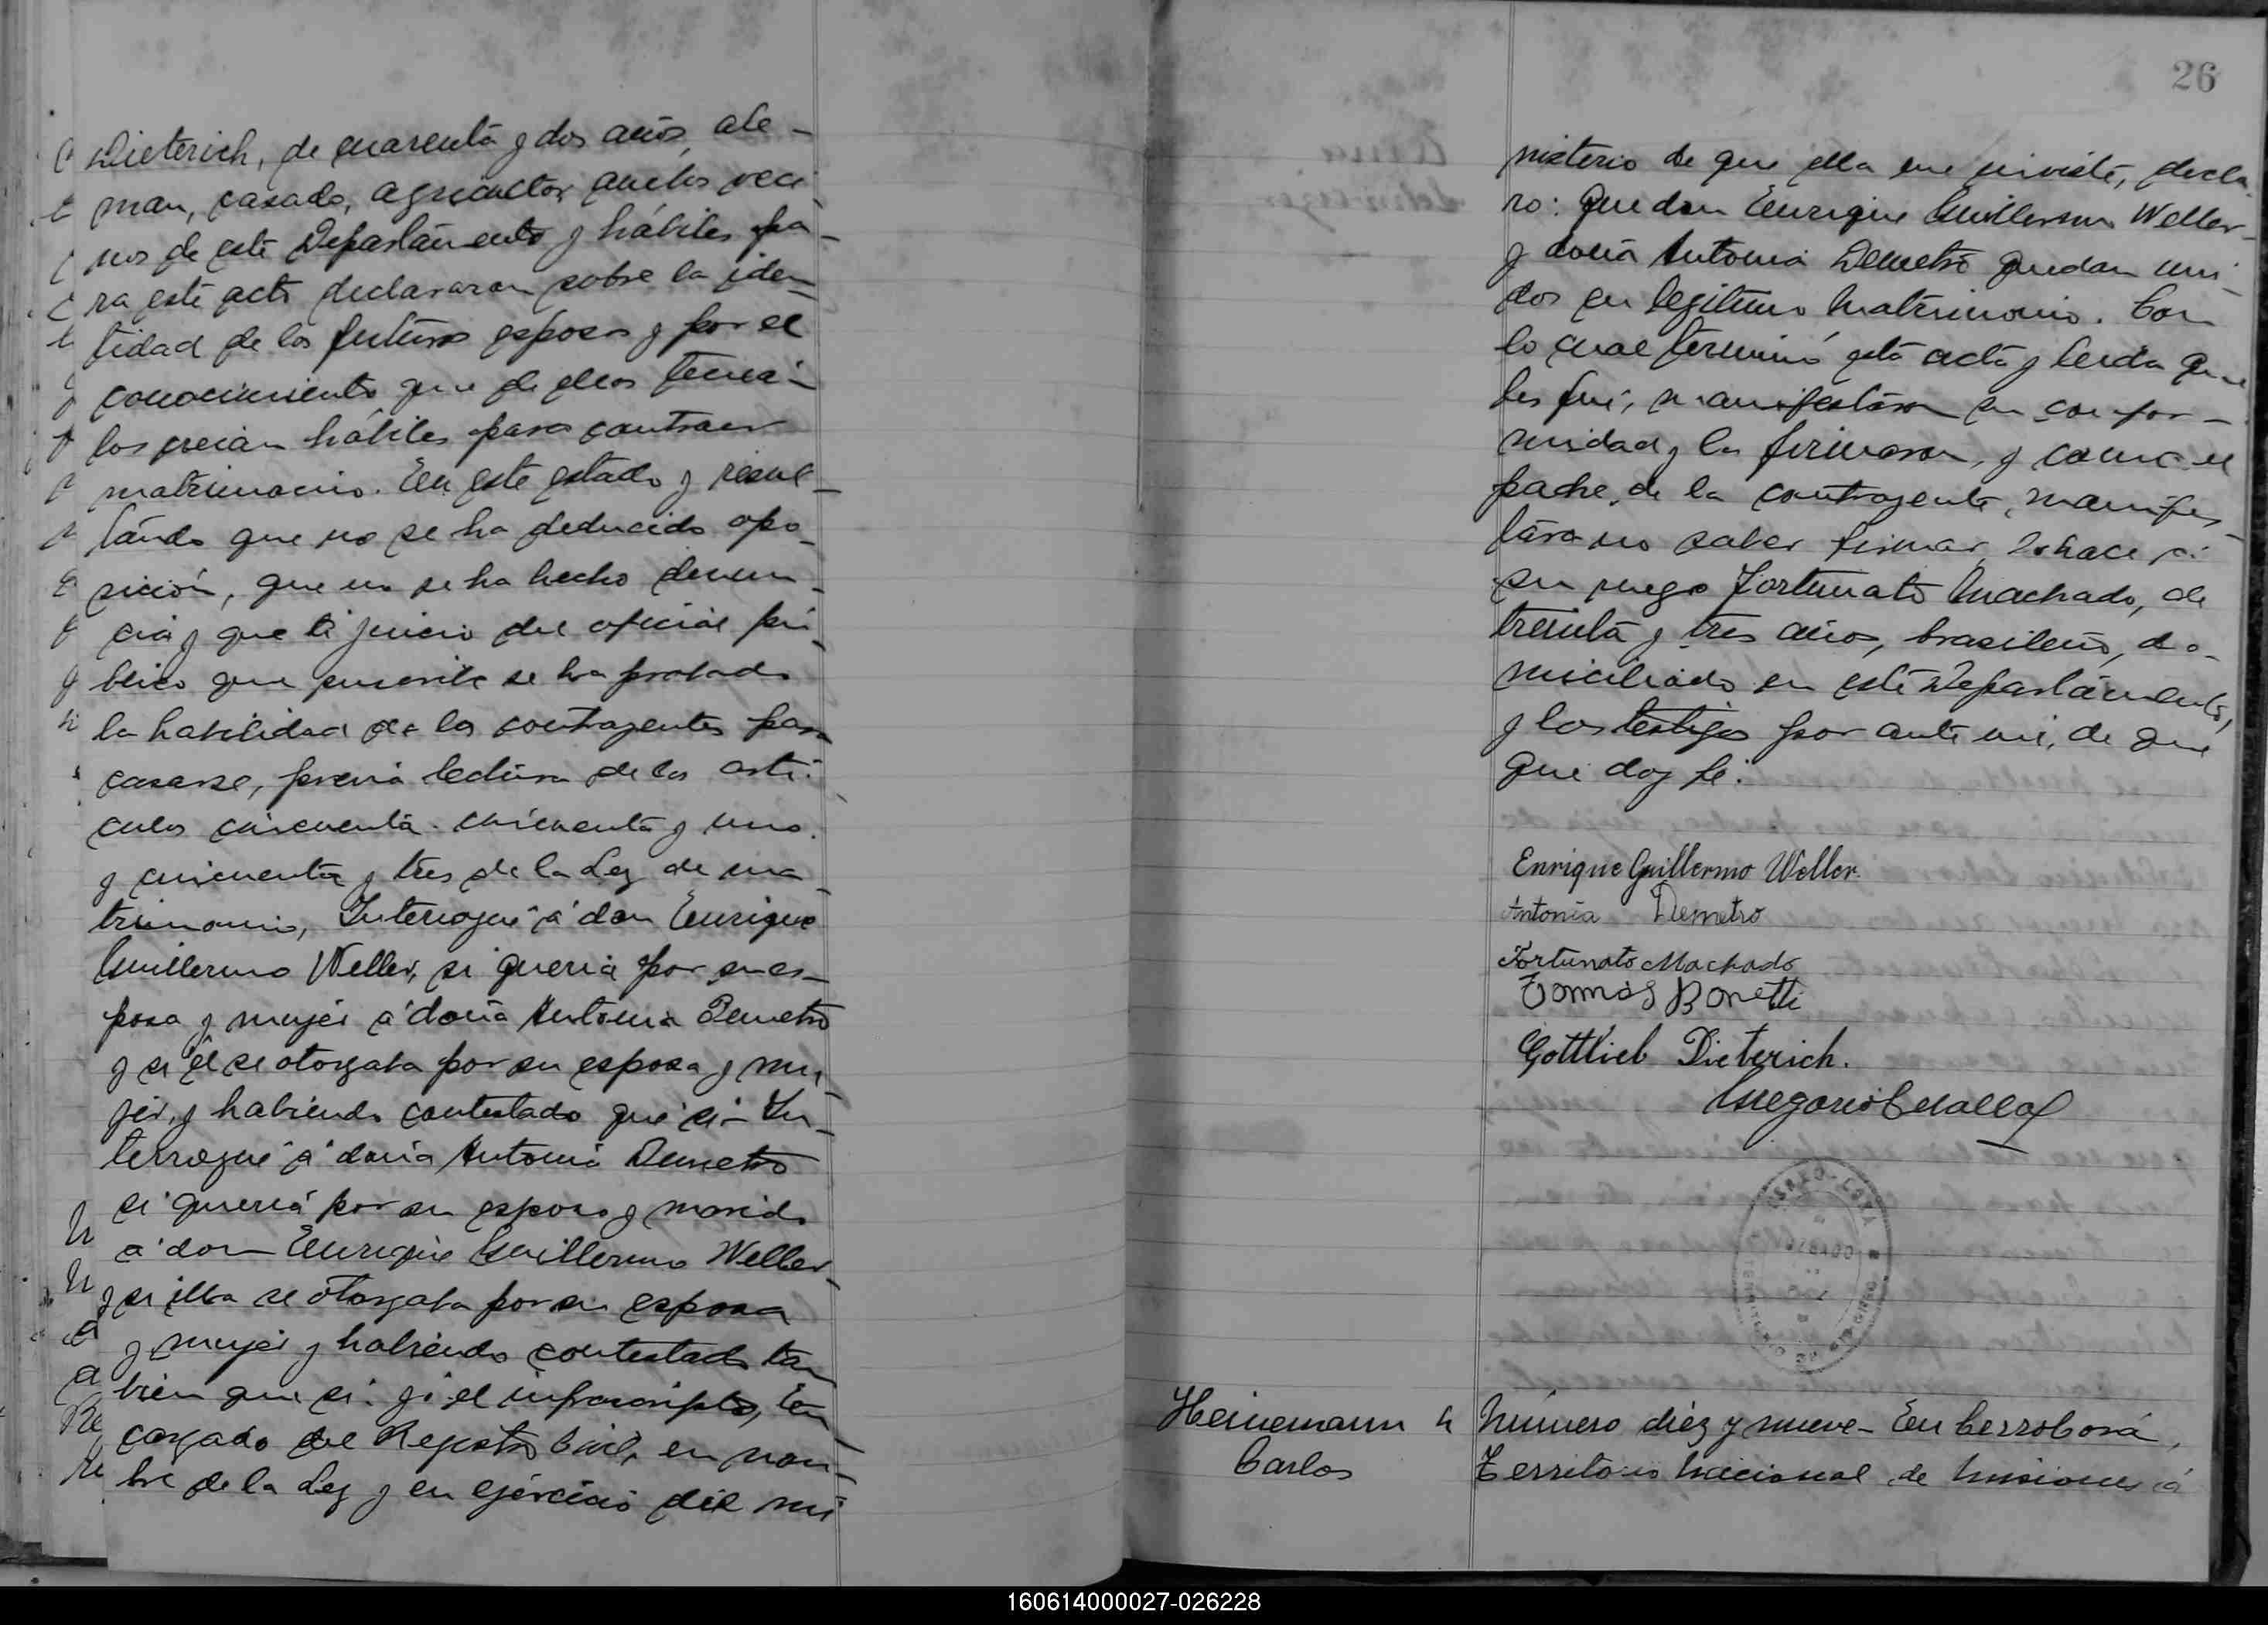 Dieterich, de cuarenta y dos años, ale-
man, casado, agricultor, ambos veci-
nos de este Departamento y hábiles pa-
ra este acto declararon sobre la iden-
tidad de los futuros esposos y por el
conocimiento que de ellos tenian
los creian hábiles para contraer
matrimonio. En este estado y resul-
tando que no se ha deducido opo-
sición, que no se ha hecho denun-
cia y que á juicio del oficial pú-
blico que suscribe se ha probado
la habilidad de los contrayentes para
casarse, previa lectura de los artí-
culos cincuenta. cincuenta y uno.
y cincuenta y tres de la Ley de ma-
trimonio, Interrogué á don Enrique
Guillermo Weller, si queria por su es-
posa y mujer á doña Antonia Demetro
y si él se otorgaba por su esposo y ma-
rido, y habiendo contestado que si- In-
terrogué á doña Antonia Demetro
si queria por su esposo y marido
á don Enrique Guillermo Weller-
y si ella se otorgaba por su esposa
y mujer y habiendo contestado tam
bien que si: yo el infrascripto, En
cargado del Registro Civil, en nom-
bre de la Ley y en ejercicio del mi
26
nisterio de que ella me inviste, decla
ro: Que don Enrique Guillermo Weller-
y doña Antonia Demetro quedan uni-
dos en legitimo matrimonio. Con
lo cual terminó esta acta y leida que
les fué, manifestaron su confor-
midad y la firmaron, y como el
padre de la contrayente, manifes-
tara no saber firmar, lo hace á
su ruego Fortunato Machado, de
treinta y tres años, brasileño, do-
miciliado en este Departamento,
y los testigos por ante mi, de que
que doy fé.
Enrique Guillermo Weller.
Antonia Demetro
Fortunato Machado
Tomás Bonetti
Gottlieb Dieterich.
CERRO-CORÁ
Heinemann
Carlos
Número diez y nueve- En Cerro Corá,
Territorio Nacional de Misiones á
160614000027-026228